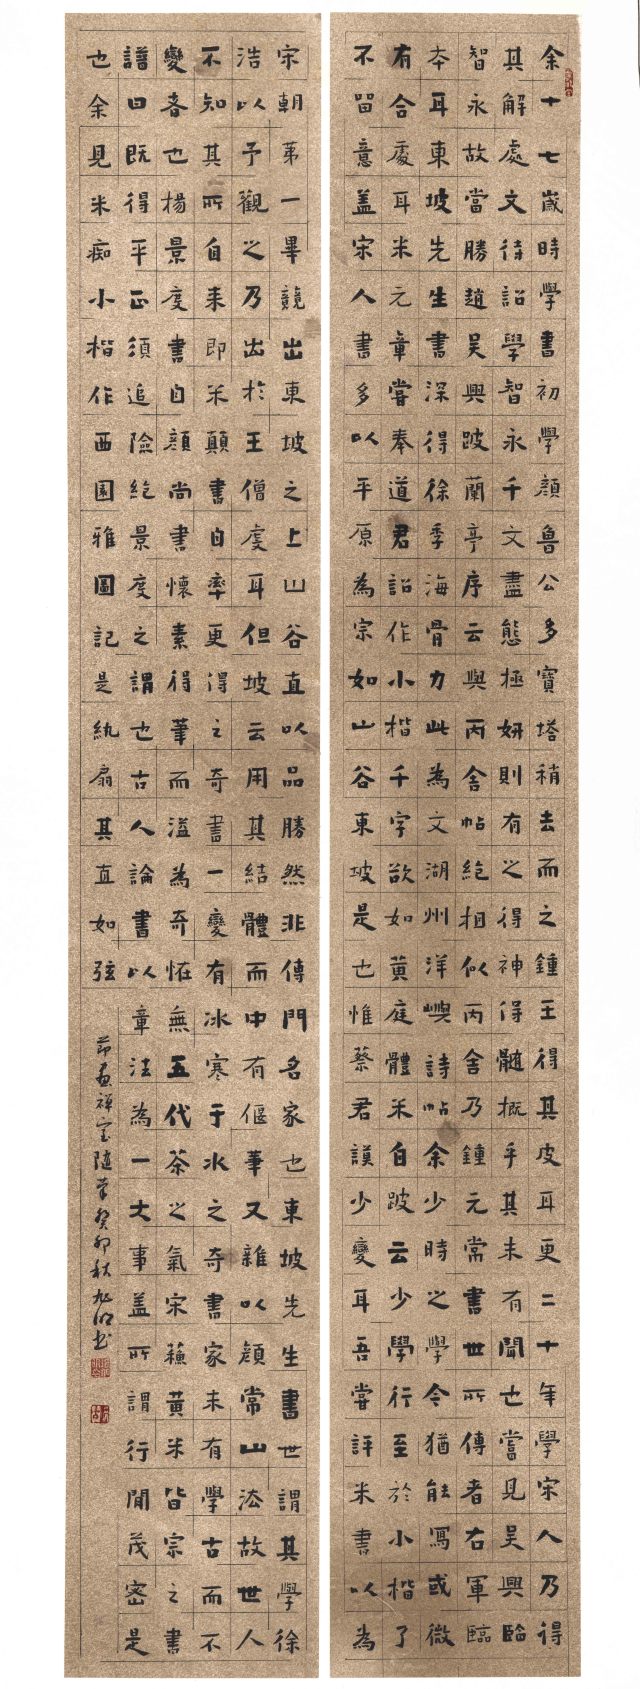 余十七歲時學書初學顏魯公多寶塔稍去而之鍾王得其皮耳更二十年學宋人乃得
其解處文待詔學智永千文盡態極妍則有之得神得髓概乎其未有聞也嘗見吳興臨
智永故當勝趙吳興跋蘭亭序云與丙舍帖絕相似丙舍乃鍾元常書世所傳者右軍臨
本耳東坡先生書深得徐季海骨力此為文湖州洋嶼詩帖余少時之學令猶能寫或微
有合處耳米元章嘗奉道君詔作小楷千字欲如黃庭體米自跋云少學行至於小楷了
不留意蓋宋人書多以平原為宗如山谷東坡是也惟蔡君謨少變耳吾嘗評米書以為
宋朝第一畢竟出東坡之上山谷直以品勝然非傳門名家也東坡先生書世謂其學徐
浩以予觀之乃出於王僧虔耳但坡云用其結體而中有偃筆又雜以顏常山法故世人
不知其所自來即米顛書自率更得之奇書一變有冰寒于水之奇書家未有學古而不
變者也楊景度書自顏尚書懷素得筆而溢為奇怪無五代茶之氣宋蘇黃米皆宗之書
譜曰既得平正須追險絕景度之謂也古人論書以章法為一大事蓋所謂行間茂密是
也余見米痴小楷作西園雅圖記是紈扇其直如弦
節畫禪室隨筆癸卯秋旭書